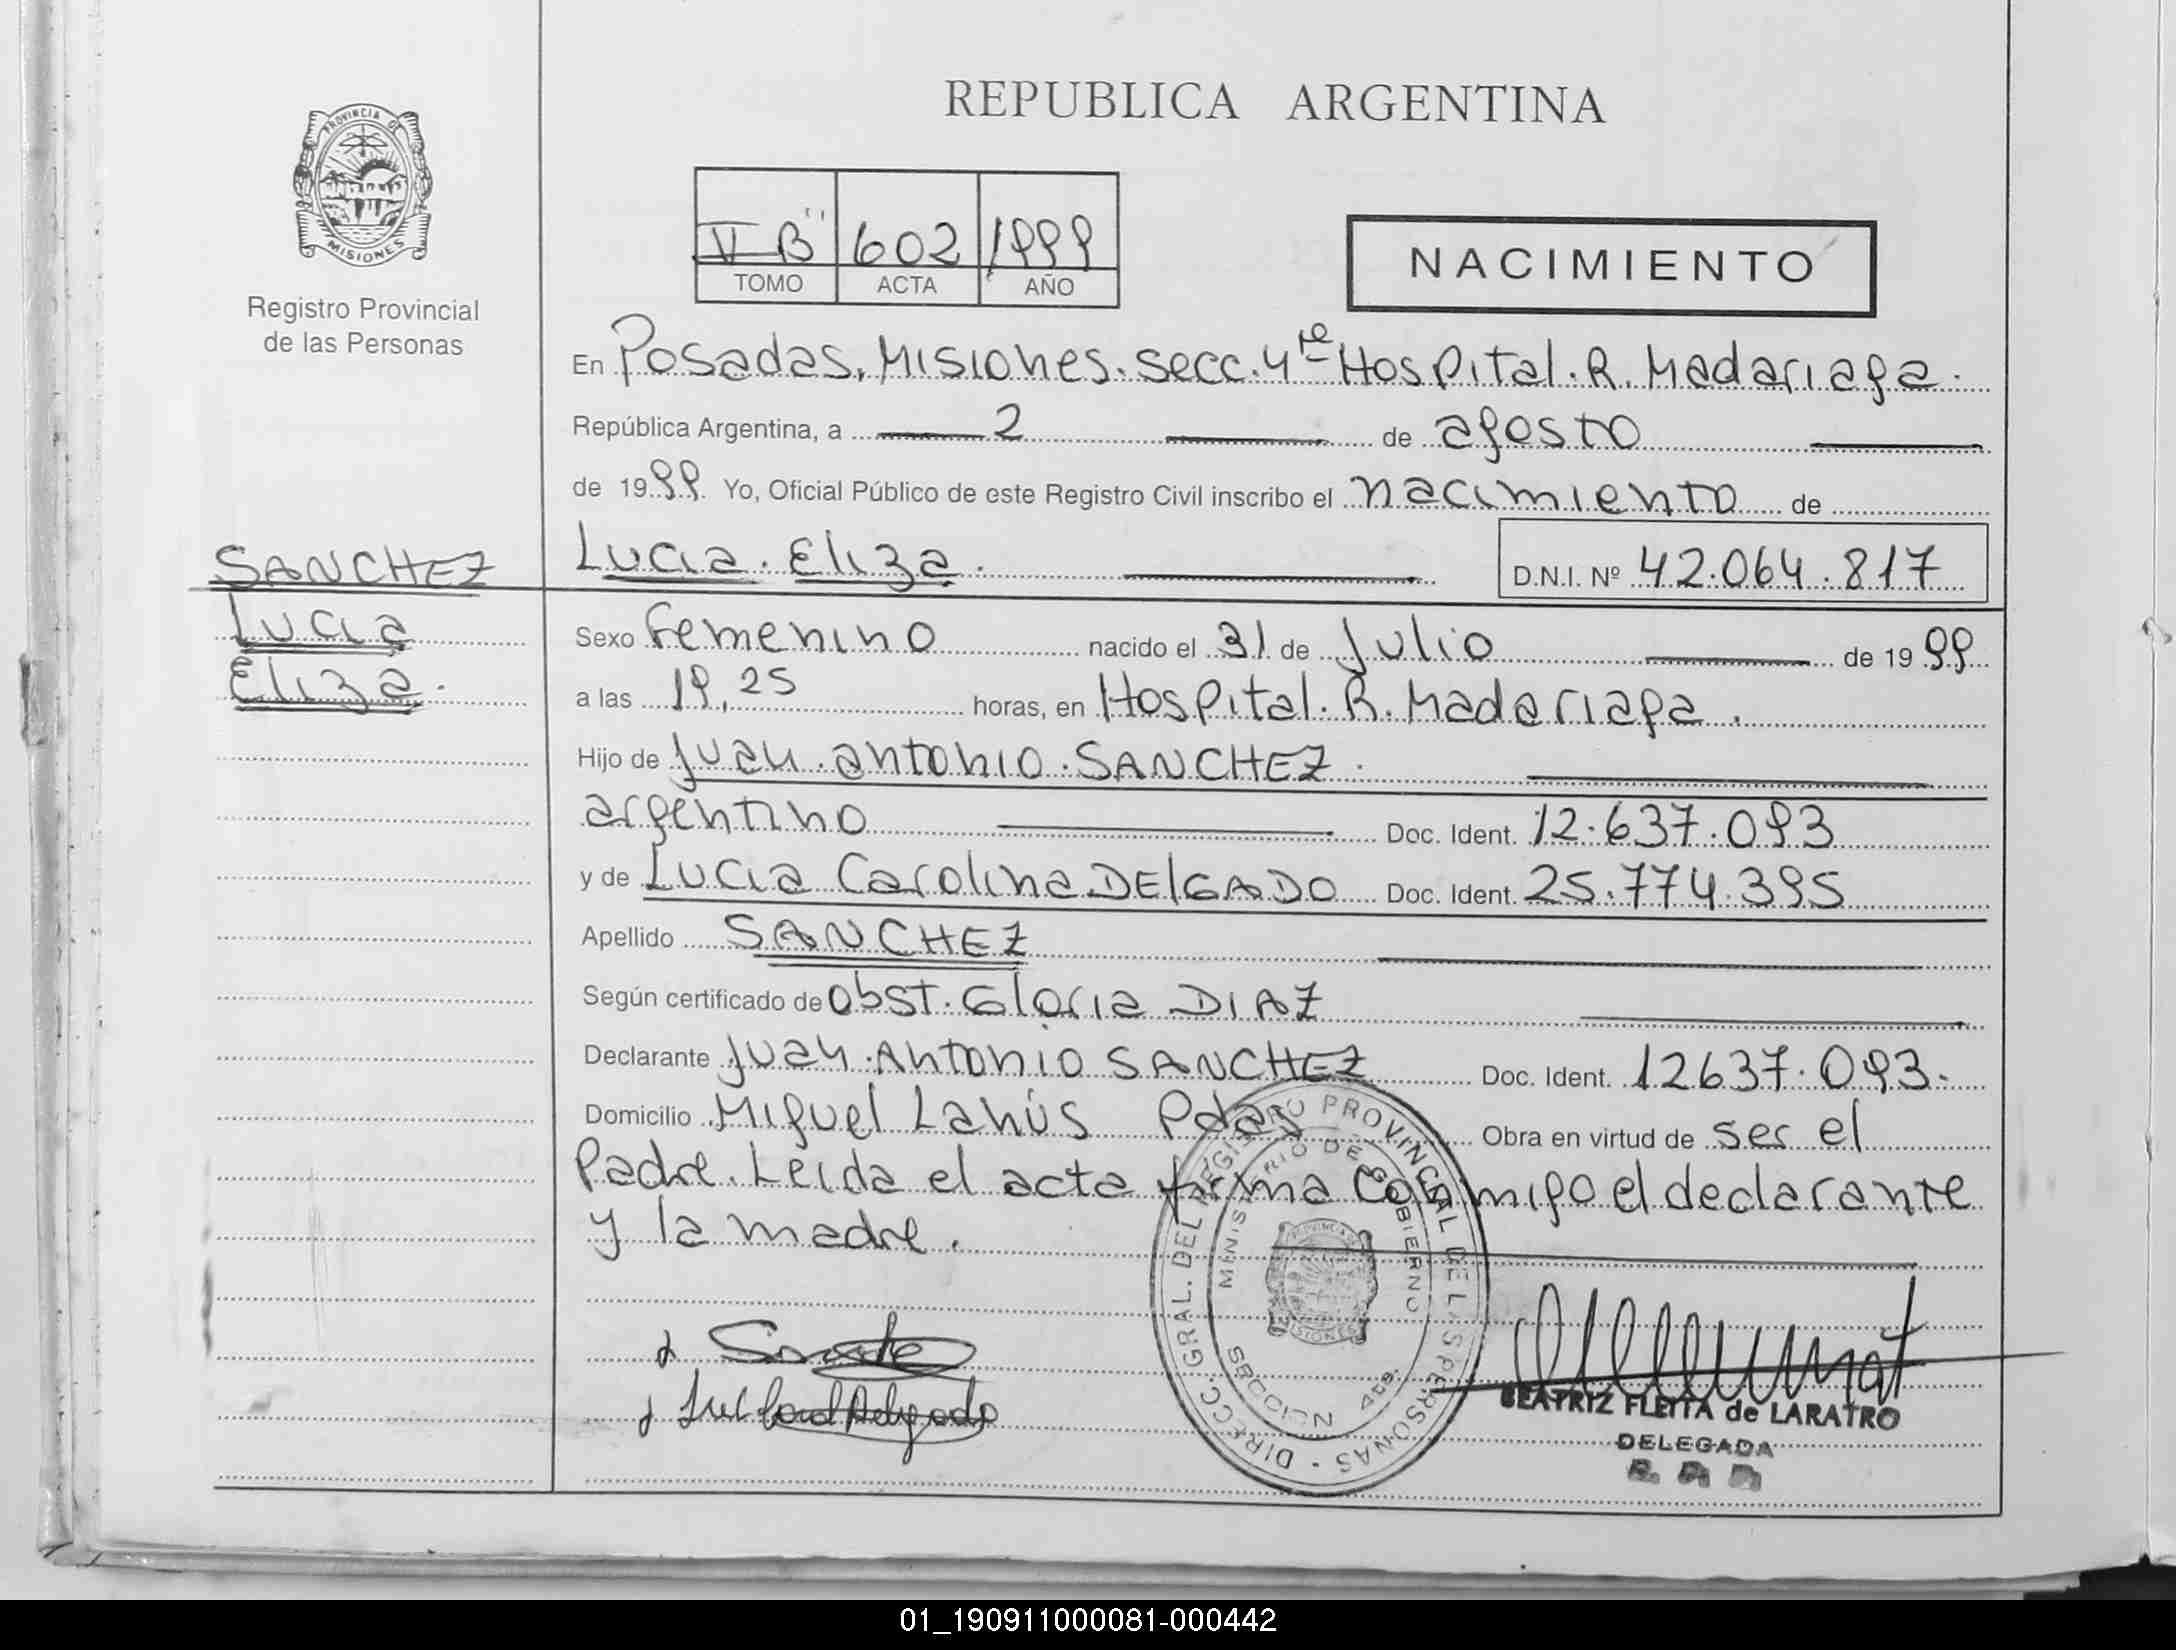 PROVINCIA DE
MISIONES
Registro Provincial
de las Personas
REPUBLICA ARGENTINA
V "B" 602 1999
TOMO ACTA AÑO
NACIMIENTO
En Posadas, Misiones. secc. 4ta Hospital. R. Madariaga.
República Argentina, a 2 de agosto
de 1999 Yo, Oficial Público de este Registro Civil inscribo el nacimiento de
Lucia Eliza. D.N.I. Nº 42.064.817
SANCHEZ
Lucia
Eliza.
Sexo femenino nacido el 31 de Julio de 1999
a las 19,25 horas, en Hospital. R. Madariaga.
Hijo de Juan Antonio SANCHEZ.
argentino Doc. Ident. 12.637.093
y de Lucia Carolina DELGADO Doc. Ident. 25.774.395
Apellido SANCHEZ
Según certificado de Obst. Gloria DIAZ
Declarante Juan Antonio SANCHEZ Doc. Ident. 12637.093.
Domicilio Miguel Lanús Pdas Obra en virtud de ser el
Padre. Leida el acta firma conmigo el declarante
y la madre.
DIRECC. GRAL. DEL REGISTRO PROVINCIAL DE LAS PERSONAS
MINISTERIO DE GOBIERNO
SECCION 4ta.
BEATRIZ FLEITA de LARATRO
DELEGADA
01_190911000081-000442